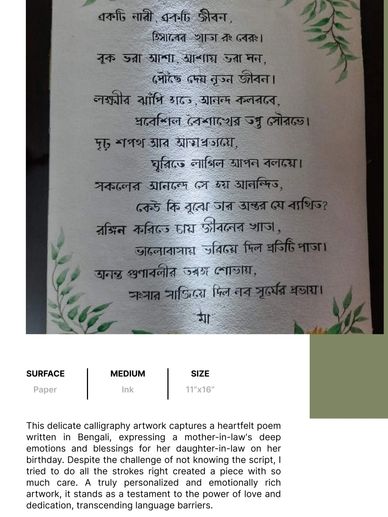 একটি নারী, একটি জীবন,
হিসাবের খাতা রং বেরং।
বুক ভরা আশা, আশায় ভরা মন,
পৌঁছে দেয় নূতন জীবন।
লক্ষ্মীর ঝাঁপি হাতে, আনন্দ কলরবে,
প্রবেশিল বৈশাখের তপ্ত সৌরভে।
দৃঢ় শপথ আর আত্মপ্রত্যয়ে,
ঘুরিতে লাগিল আপন বলয়ে।
সকলের আনন্দে সে হয় আনন্দিত,
কেউ কি বুঝে তার অন্তর যে ব্যথিত?
রঙ্গিন করিতে চায় জীবনের খাতা,
ভালোবাসায় ভরিয়ে দিল প্রতিটি পাতা।
অনন্ত গুণাবলীর তরঙ্গ শোভায়,
সংসার সাজিয়ে দিল নব সূর্যের প্রভায়।
মা
SURFACE MEDIUM SIZE
Paper Ink 11"x16"
This delicate calligraphy artwork captures a heartfelt poem
written in Bengali, expressing a mother-in-law's deep
emotions and blessings for her daughter-in-law on her
birthday. Despite the challenge of not knowing the script, I
tried to do all the strokes right created a piece with so
much care. A truly personalized and emotionally rich
artwork, it stands as a testament to the power of love and
dedication, transcending language barriers.